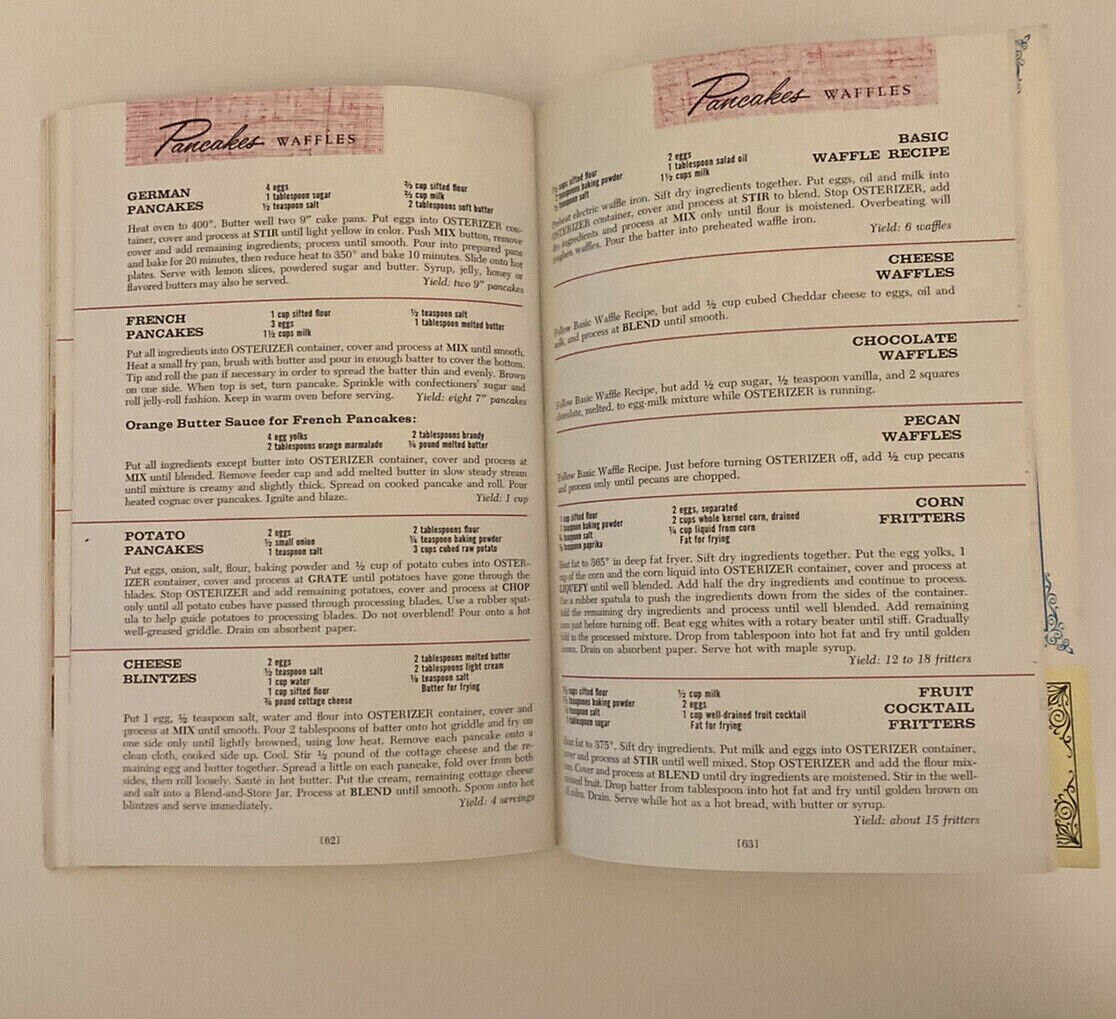 Pancakes WAFFLES
GERMAN
PANCAKES
4 eggs
1 tablespoon sugar
½ teaspoon salt
⅔ cup sifted flour
⅔ cup milk
2 tablespoons soft butter
Heat oven to 400°. Butter well two 9" cake pans. Put eggs into OSTERIZER con-
tainer, cover and process at STIR until light yellow in color. Push MIX button, remove
cover and add remaining ingredients; process until smooth. Pour into prepared pans
and bake for 20 minutes, then reduce heat to 350° and bake 10 minutes. Slide onto hot
plates. Serve with lemon slices, powdered sugar and butter. Syrup, jelly, honey or
flavored butters may also be served. Yield: two 9" pancakes
FRENCH
PANCAKES
1 cup sifted flour
3 eggs
1½ cups milk
½ teaspoon salt
1 tablespoon melted butter
Put all ingredients into OSTERIZER container, cover and process at MIX until smooth.
Heat a small fry pan, brush with butter and pour in enough batter to cover the bottom.
Tip and roll the pan if necessary in order to spread the batter thin and evenly. Brown
on one side. When top is set, turn pancake. Sprinkle with confectioners' sugar and
roll jelly-roll fashion. Keep in warm oven before serving. Yield: eight 7" pancakes
Orange Butter Sauce for French Pancakes:
4 egg yolks
2 tablespoons orange marmalade
2 tablespoons brandy
¼ pound melted butter
Put all ingredients except butter into OSTERIZER container, cover and process at
MIX until blended. Remove feeder cap and add melted butter in slow steady stream
until mixture is creamy and slightly thick. Spread on cooked pancake and roll. Pour
heated cognac over pancakes. Ignite and blaze. Yield: 1 cup
POTATO
PANCAKES
2 eggs
½ small onion
1 teaspoon salt
2 tablespoons flour
¼ teaspoon baking powder
3 cups cubed raw potato
Put eggs, onion, salt, flour, baking powder and ½ cup of potato cubes into OSTER-
IZER container, cover and process at GRATE until potatoes have gone through the
blades. Stop OSTERIZER and add remaining potatoes, cover and process at CHOP
only until all potato cubes have passed through processing blades. Use a rubber spat-
ula to help guide potatoes to processing blades. Do not overblend! Pour onto a hot
well-greased griddle. Drain on absorbent paper.
CHEESE
BLINTZES
2 eggs
½ teaspoon salt
1 cup water
1 cup sifted flour
¾ pound cottage cheese
2 tablespoons melted butter
2 tablespoons light cream
⅛ teaspoon salt
Butter for frying
Put 1 egg, ½ teaspoon salt, water and flour into OSTERIZER container, cover and
process at MIX until smooth. Pour 2 tablespoons of batter onto hot griddle and fry on
one side only until lightly browned, using low heat. Remove each pancake onto a
clean cloth, cooked side up. Cool. Stir ½ pound of the cottage cheese and the re-
maining egg and butter together. Spread a little on each pancake, fold over from both
sides, then roll loosely. Sauté in hot butter. Put the cream, remaining cottage cheese
and salt into a Blend-and-Store Jar. Process at BLEND until smooth. Spoon onto hot
blintzes and serve immediately. Yield: 4 servings
[62]
Pancakes WAFFLES
BASIC
WAFFLE RECIPE
cups sifted flour
teaspoons baking powder
teaspoon salt
2 eggs
1 tablespoon salad oil
1½ cups milk
Preheat electric waffle iron. Sift dry ingredients together. Put eggs, oil and milk into
OSTERIZER container, cover and process at STIR to blend. Stop OSTERIZER, add
dry ingredients and process at MIX only until flour is moistened. Overbeating will
toughen waffles. Pour the batter into preheated waffle iron. Yield: 6 waffles
CHEESE
WAFFLES
Follow Basic Waffle Recipe, but add ½ cup cubed Cheddar cheese to eggs, oil and
milk, and process at BLEND until smooth.
CHOCOLATE
WAFFLES
Follow Basic Waffle Recipe, but add ½ cup sugar, ½ teaspoon vanilla, and 2 squares
chocolate, melted, to egg-milk mixture while OSTERIZER is running.
PECAN
WAFFLES
Follow Basic Waffle Recipe. Just before turning OSTERIZER off, add ½ cup pecans
and process only until pecans are chopped.
CORN
FRITTERS
1 cup sifted flour
teaspoon baking powder
teaspoon salt
teaspoon paprika
2 eggs, separated
2 cups whole kernel corn, drained
¼ cup liquid from corn
Fat for frying
Heat fat to 365° in deep fat fryer. Sift dry ingredients together. Put the egg yolks, 1
cup of the corn and the corn liquid into OSTERIZER container, cover and process at
LIQUEFY until well blended. Add half the dry ingredients and continue to process.
Use a rubber spatula to push the ingredients down from the sides of the container.
Add the remaining dry ingredients and process until well blended. Add remaining
corn just before turning off. Beat egg whites with a rotary beater until stiff. Gradually
fold in the processed mixture. Drop from tablespoon into hot fat and fry until golden
brown. Drain on absorbent paper. Serve hot with maple syrup.
Yield: 12 to 18 fritters
FRUIT
COCKTAIL
FRITTERS
cups sifted flour
teaspoons baking powder
teaspoon salt
1 tablespoon sugar
½ cup milk
2 eggs
1 cup well-drained fruit cocktail
Fat for frying
Heat fat to 375°. Sift dry ingredients. Put milk and eggs into OSTERIZER container,
cover and process at STIR until well mixed. Stop OSTERIZER and add the flour mix-
ture. Cover and process at BLEND until dry ingredients are moistened. Stir in the well-
drained fruit. Drop batter from tablespoon into hot fat and fry until golden brown on
all sides. Drain. Serve while hot as a hot bread, with butter or syrup.
Yield: about 15 fritters
[63]